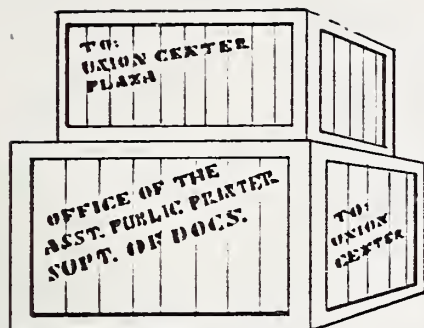 TO:
UNION CENTER
PLAZA
OFFICE OF THE
ASST. PUBLIC PRINTER
SUPT. OF DOCS.
TO:
UNION
CENTER